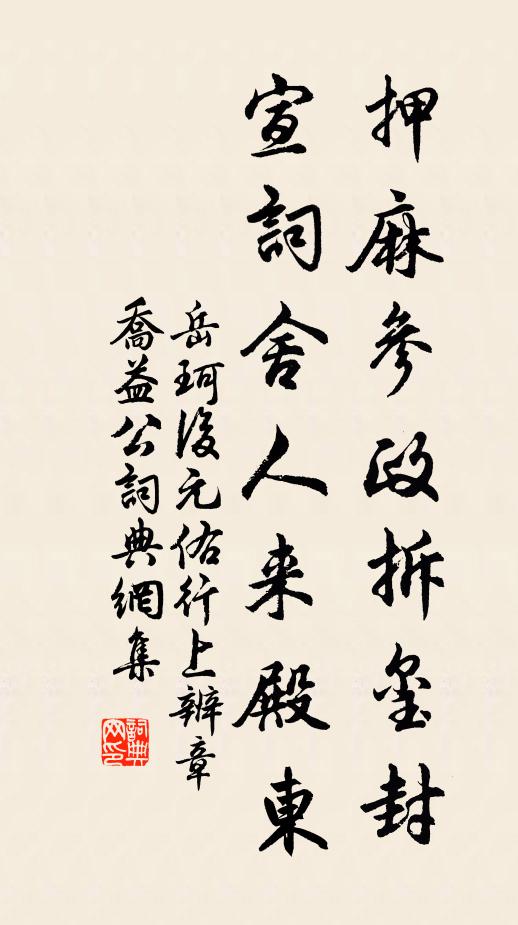 押麻參政拆璽封
宣詞舍人来殿東
岳珂後元佑行上辨章
喬益公詞典網集
詞典
网印